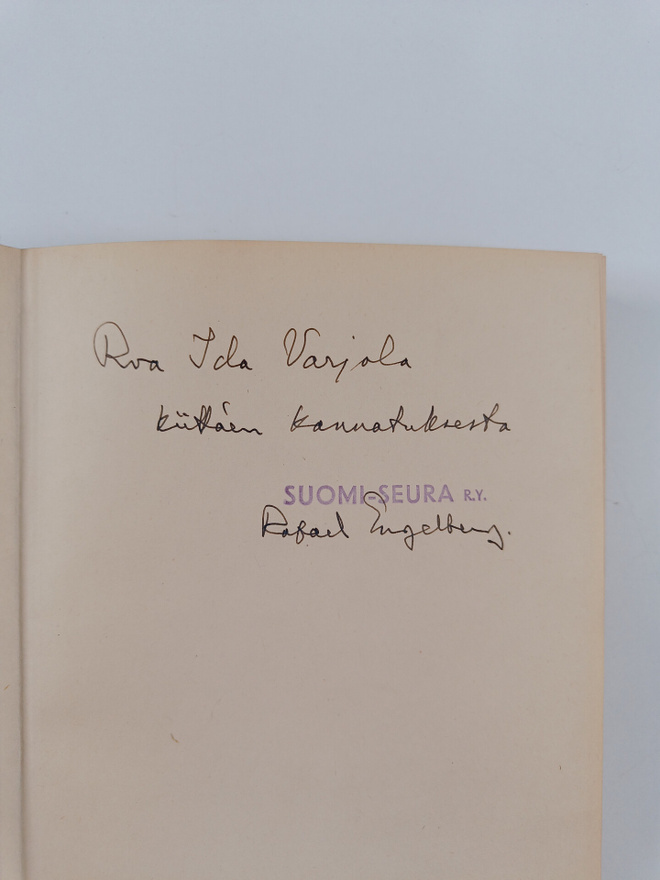 Rva Ida Varjola
kiittäen kannatuksesta
SUOMI-SEURA R.Y.
Rafael Engelberg.